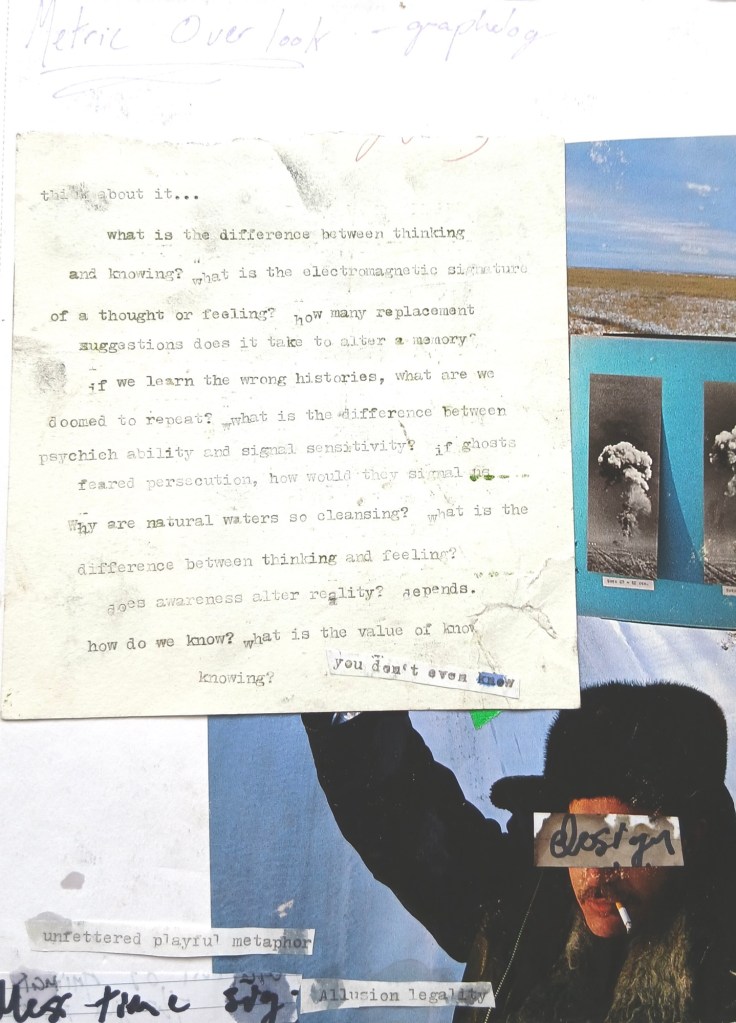 Metric Overlook - graphelog
think about it...
what is the difference between thinking
and knowing? what is the electromagnetic signature
of a thought or feeling? how many replacement
suggestions does it take to alter a memory"
if we learn the wrong histories, what are we
doomed to repeat? what is the difference between
psychich ability and signal sensitivity? if ghosts
feared persecution, how would they signal
Why are natural waters so cleansing? what is the
difference between thinking and feeling?
does awareness alter reality? depends.
how do we know? what is the value of know
knowing?
you don't even know
design
unfettered playful metaphor
time sig.
Allusion legality